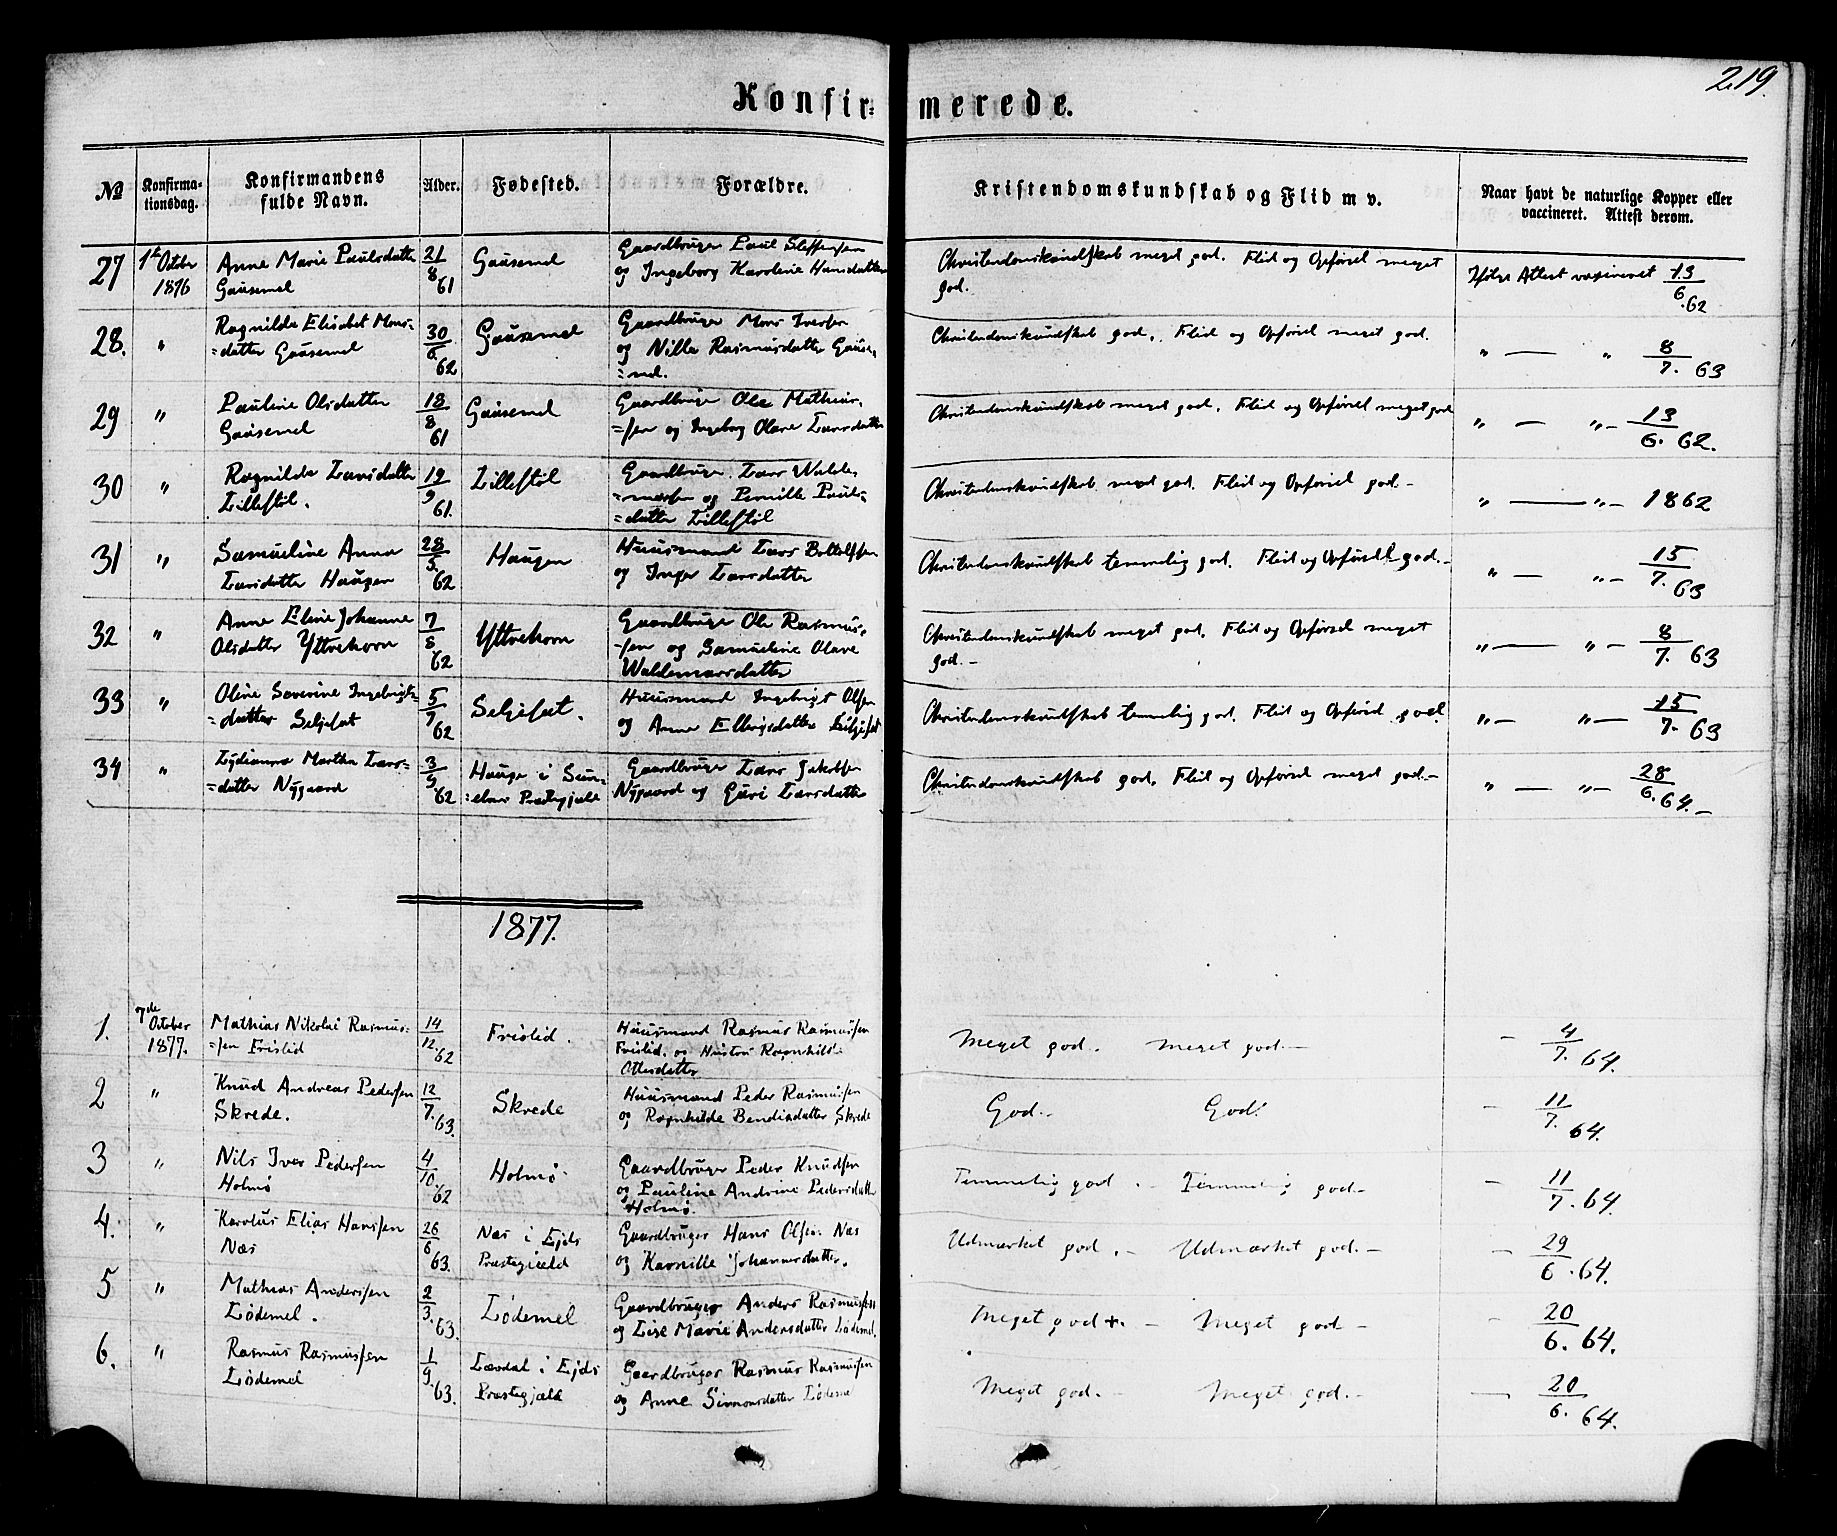 219.
Konfir= merede.
№
Konfirma-
tionsdag.
Konfirmandens
fulde Navn.
Alder.
Fødested.
Forældre.
Kristendomskundskab og Flid m v.
Naar havt de naturlige Kopper eller
vaccineret. Attest derom.
27 1st October 1876
Anne Marie Paulsdatter
Gausemel
21/8 61
Gausemel
Gaardbruger Paul Steffensen
og Ingeborg Karoline Hansdatter
Christendomskundskab meget god. Flid og Opførsel meget
god.
Ifølge Attest vaccineret 13/6 62
28. "
Ragnilde Elisabet Mons=
=datter Gausemel
30/6 62
Gausemel
Gaardbruger Mons Iversen
og Nille Rasmusdatter Gause=
=mel.
Christendomskundskab god. Flid og Opførsel meget god.
" — " 8/7. 63
29 "
Pauline Olsdatter
Gausemel
18/8 61
Gausemel
Gaardbruger Ole Mathias=
=sen og Ingeborg Olave Larsdatter
Christendomskundskab meget god. Flid og Opførsel meget god
" — " — 13/6. 62.
30 "
Ragnilde Larsdatter
Lillestøl.
19/9 61.
Lillestøl
Gaardbruger Lars Walde=
=marsen og Pernille Pauls=
=datter Lillestøl
Christendomskundskab meget god. Flid og Opførsel god.-
" — " — 1862
31 "
Samueline Anna
Larsdatter Haugen
28/5. 62
Haugen
Huusmand Lars Bottolfsen
og Inger Larsdatter
Christendomskundskab temmelig god. Flid og Opførsel god.-
" — " — 15/7. 63
32 "
Anne Eline Johanne
Olsdatter Yttrehorn
7/8 62
Yttrehorn
Gaardbruger Ole Rasmus=
=sen og Samueline Olave
Waldemarsdatter
Christendomskundskab meget god. Flid og Opførsel meget
god.-
" — " — 8/7. 63
33 "
Oline Severine Ingebrigts=
=datter Seljeset
5/7 62
Seljeset.
Huusmand Ingebrigt Olsen
og Anne Ellingsdatter Seljeset
Christendomskundskab temmelig god. Flid og Opførsel god.
" — " — 15/7. 63
34 "
Lydianna Martha Lars=
=datter Nygaard
3/9 62
Hauge i Sun=
=elvs Præstegjæld
Gaardbruger Lars Jakobsen
Nygaard og Guri Larsdatter
Christendomskundskab god. Flid og Opførsel meget god.-
" — " — 28/6. 64.-
1877.
1. 7de October 1877.
Mathias Nikolai Rasmus=
=sen Frislid
14/12. 62
Frislid.
Huusmand Rasmus Rasmussen
Frislid. og Hustru Ragnhilde
Ottesdatter
Meget god. Meget god.-
- 4/7. 64.
2 "
Knud Andreas Pedersen
Skrede.
12/7. 63.
Skrede
Huusmand Peder Rasmussen
og Ragnhilde Bendiksdatter Skrede
God.- God.
- 11/7. 64.
3 "
Nils Iver Pedersen
Holmø
4/10. 62
Holmø
Gaardbruger Peder Knudsen
og Pauline Andrine Pedersdatter
Holmø.
Temmelig god. - Temmelig god.-
- 11/7. 64.
4. "
Karolus Elias Hansen
Næs
26/6 63.
Næs i Ejds
Præstegjæld
Gaardbruger Hans Olsen Næs
og Karnille Johannesdatter.
Udmærket god. - Udmærket god.-
- 29/6. 64.
5 "
Mathias Andersen
Lødemel.
2/3. 63.
Lødemel
Gaardbruger Anders Rasmussen
og Lise Marie Andersdatter Lødemel.
Meget god+. - Meget god -
- 20/6. 64.
6. "
Rasmus Rasmussen
Lødemel
1/9. 63.
Lævdal i Ejds
Præstegjæld
Gaardbruger Rasmus Rasmussen
og Anne Simonsdatter Lødemel
Meget god. - Meget god. -
— 20/6. 64.